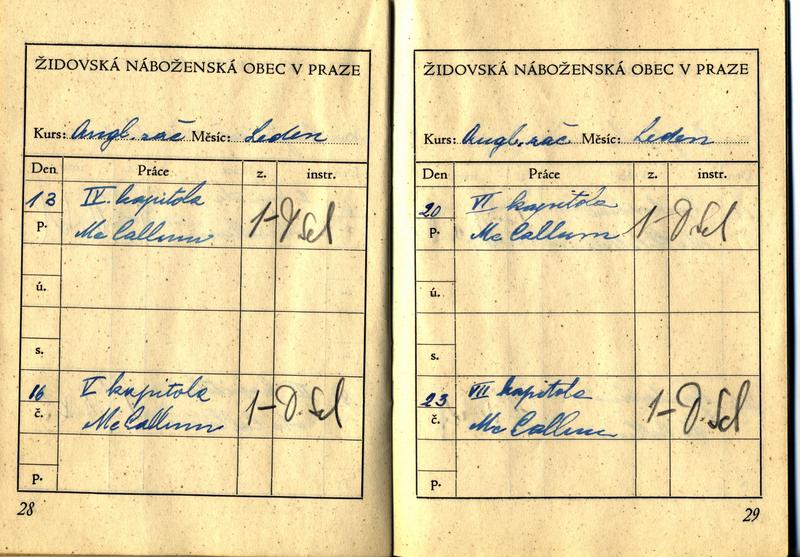 ŽIDOVSKÁ NÁBOŽENSKÁ OBEC V PRAZE
Kurs: Angl. zač Měsíc: Leden
Den Práce z. instr.
13 IV. kapitola
p. Mc Callum 1- D. Sel
ú.
s.
16 V kapitola
č. Mc Callum 1- D. Sel
p.
28
ŽIDOVSKÁ NÁBOŽENSKÁ OBEC V PRAZE
Kurs: Angl. zač Měsíc: Leden
Den Práce z. instr.
20 VI kapitola
p. Mc Callum 1- D. Sel
ú.
s.
23 VII kapitola
č. Mc Callum 1- D. Sel
p.
29